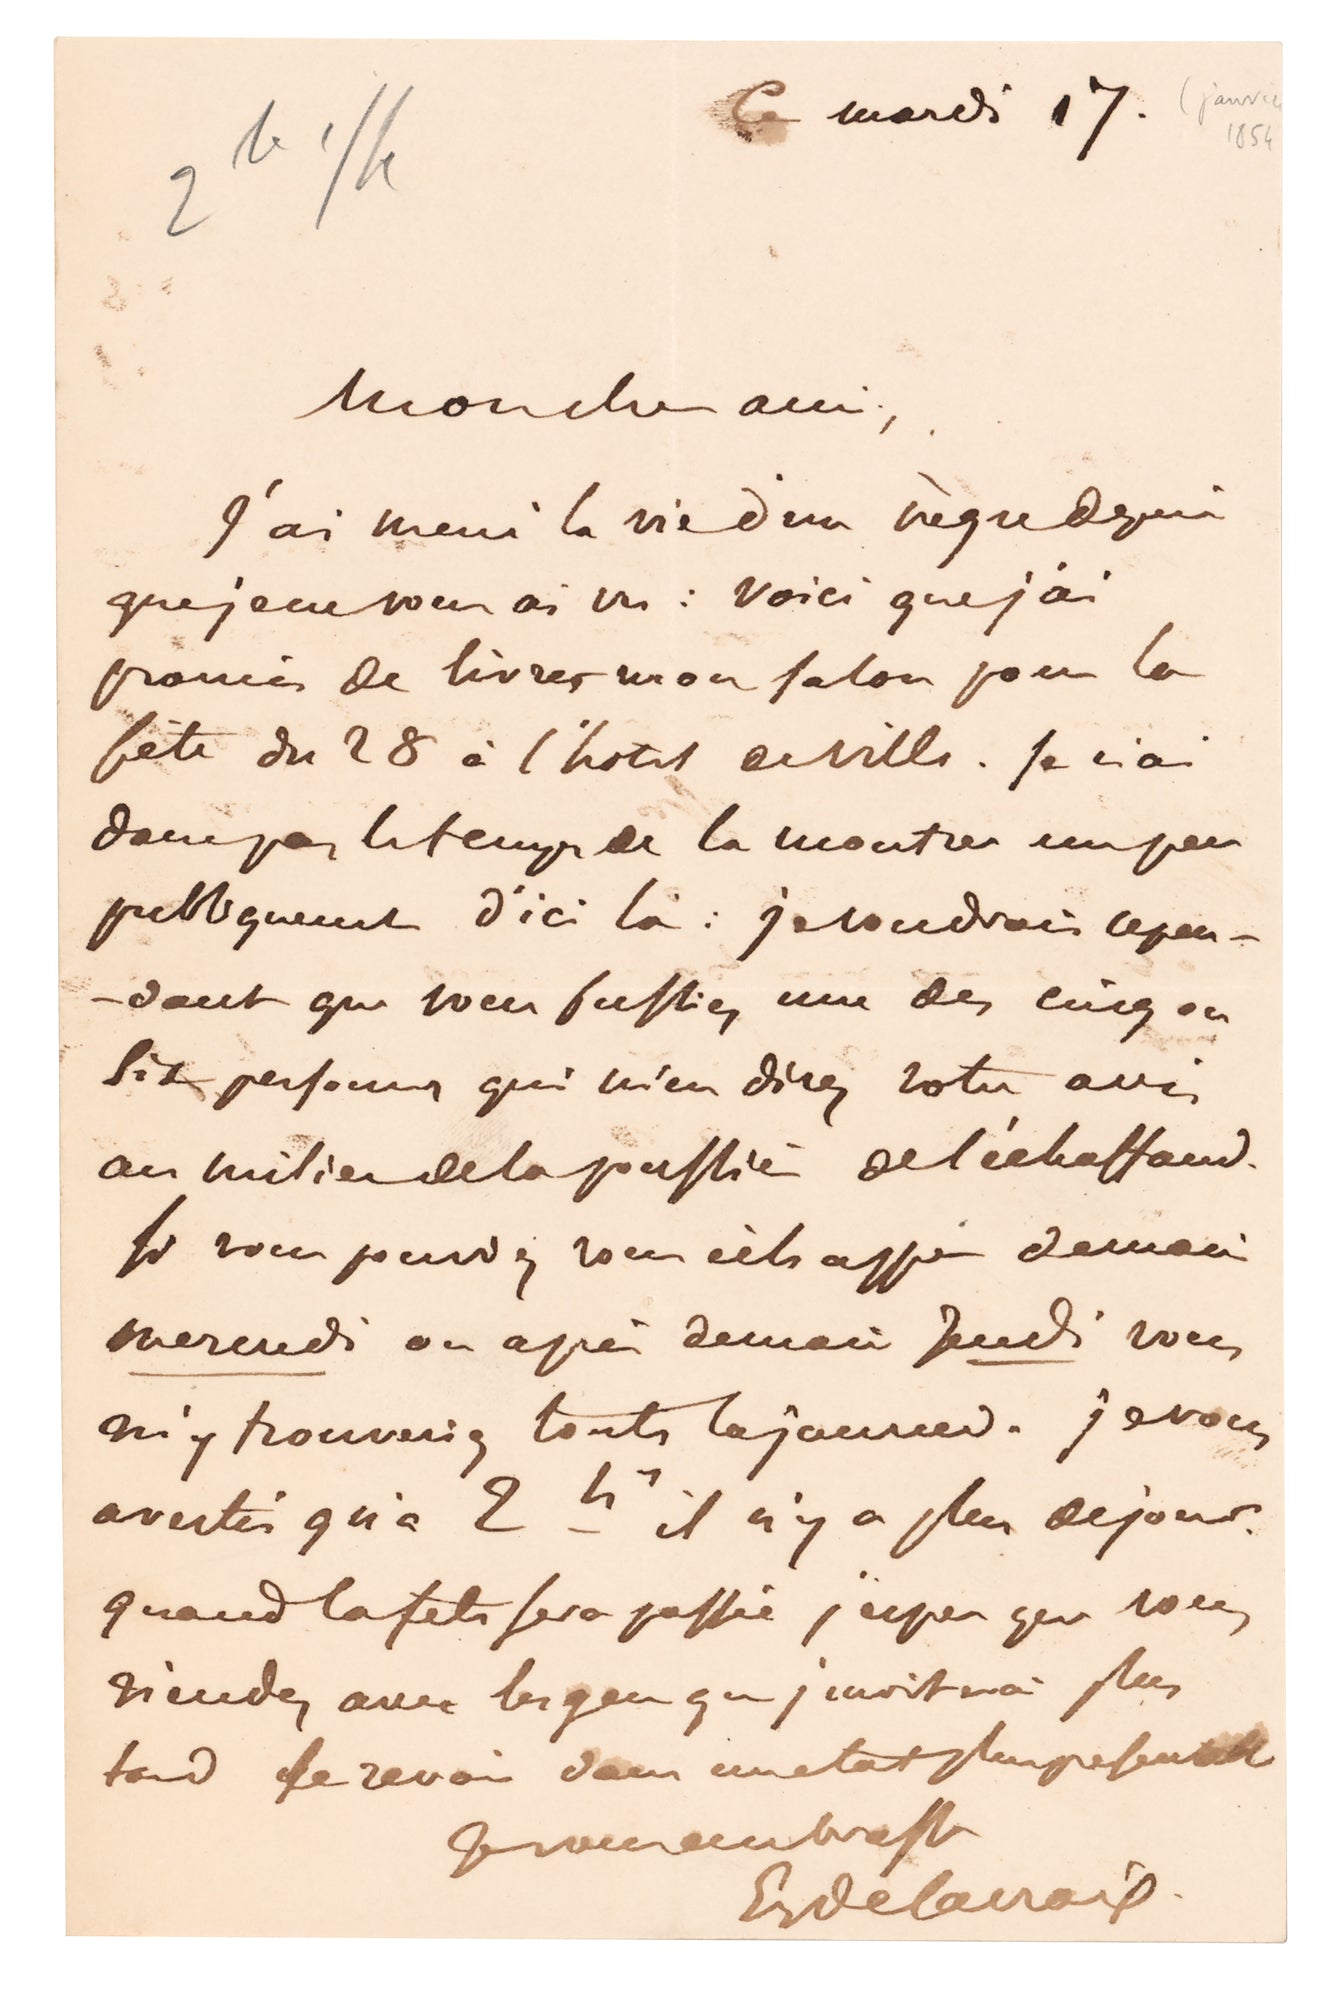 Ce mardi 17. (janvier
1854
2 h 1/2
Mon cher ami,
J'ai mené la vie d'un nègre depuis
que je ne vous ai vu : voici que j'ai
promis de livrer mon salon pour la
fête du 28 à l'hotel de ville. Je n'ai
donc pas le temps de la montrer un peu
publiquement d'ici là : je voudrais cepen-
-dant que vous fussiez une des cinq ou
six personnes qui m'en direz votre avis
au milieu de la poussière de l'échaffaud.
Si vous pouviez vous échapper demain
mercredi ou après demain Jeudi vous
m'y trouveriez toute la journée. je vous
avertis qu'à 2 hres il n'y a plus de jour.
quand la fête sera passée j'espère que vous
viendrez avec les gens que j'inviterai plus
tard le revoir dans un état plus présentable
Je vous embrasse
Eug Delacroix.